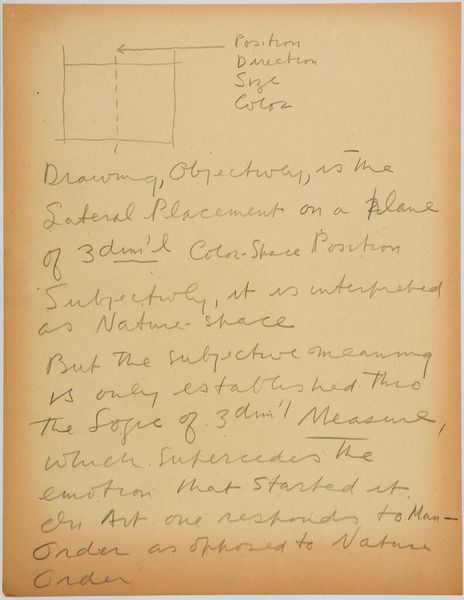 Position
Direction
Size
Color
Drawing, Objectively, is The
Lateral Placement on a Plane
of 3 dim'l Color-Space Position
Subjectively, it is interpreted
as Nature-space
But The subjective meaning
is only established Thro
The Logic of 3 dim'l Measure,
Which Supercedes The
emotion that Started it.
In Art one responds to Man-
Order as opposed to Nature
Order